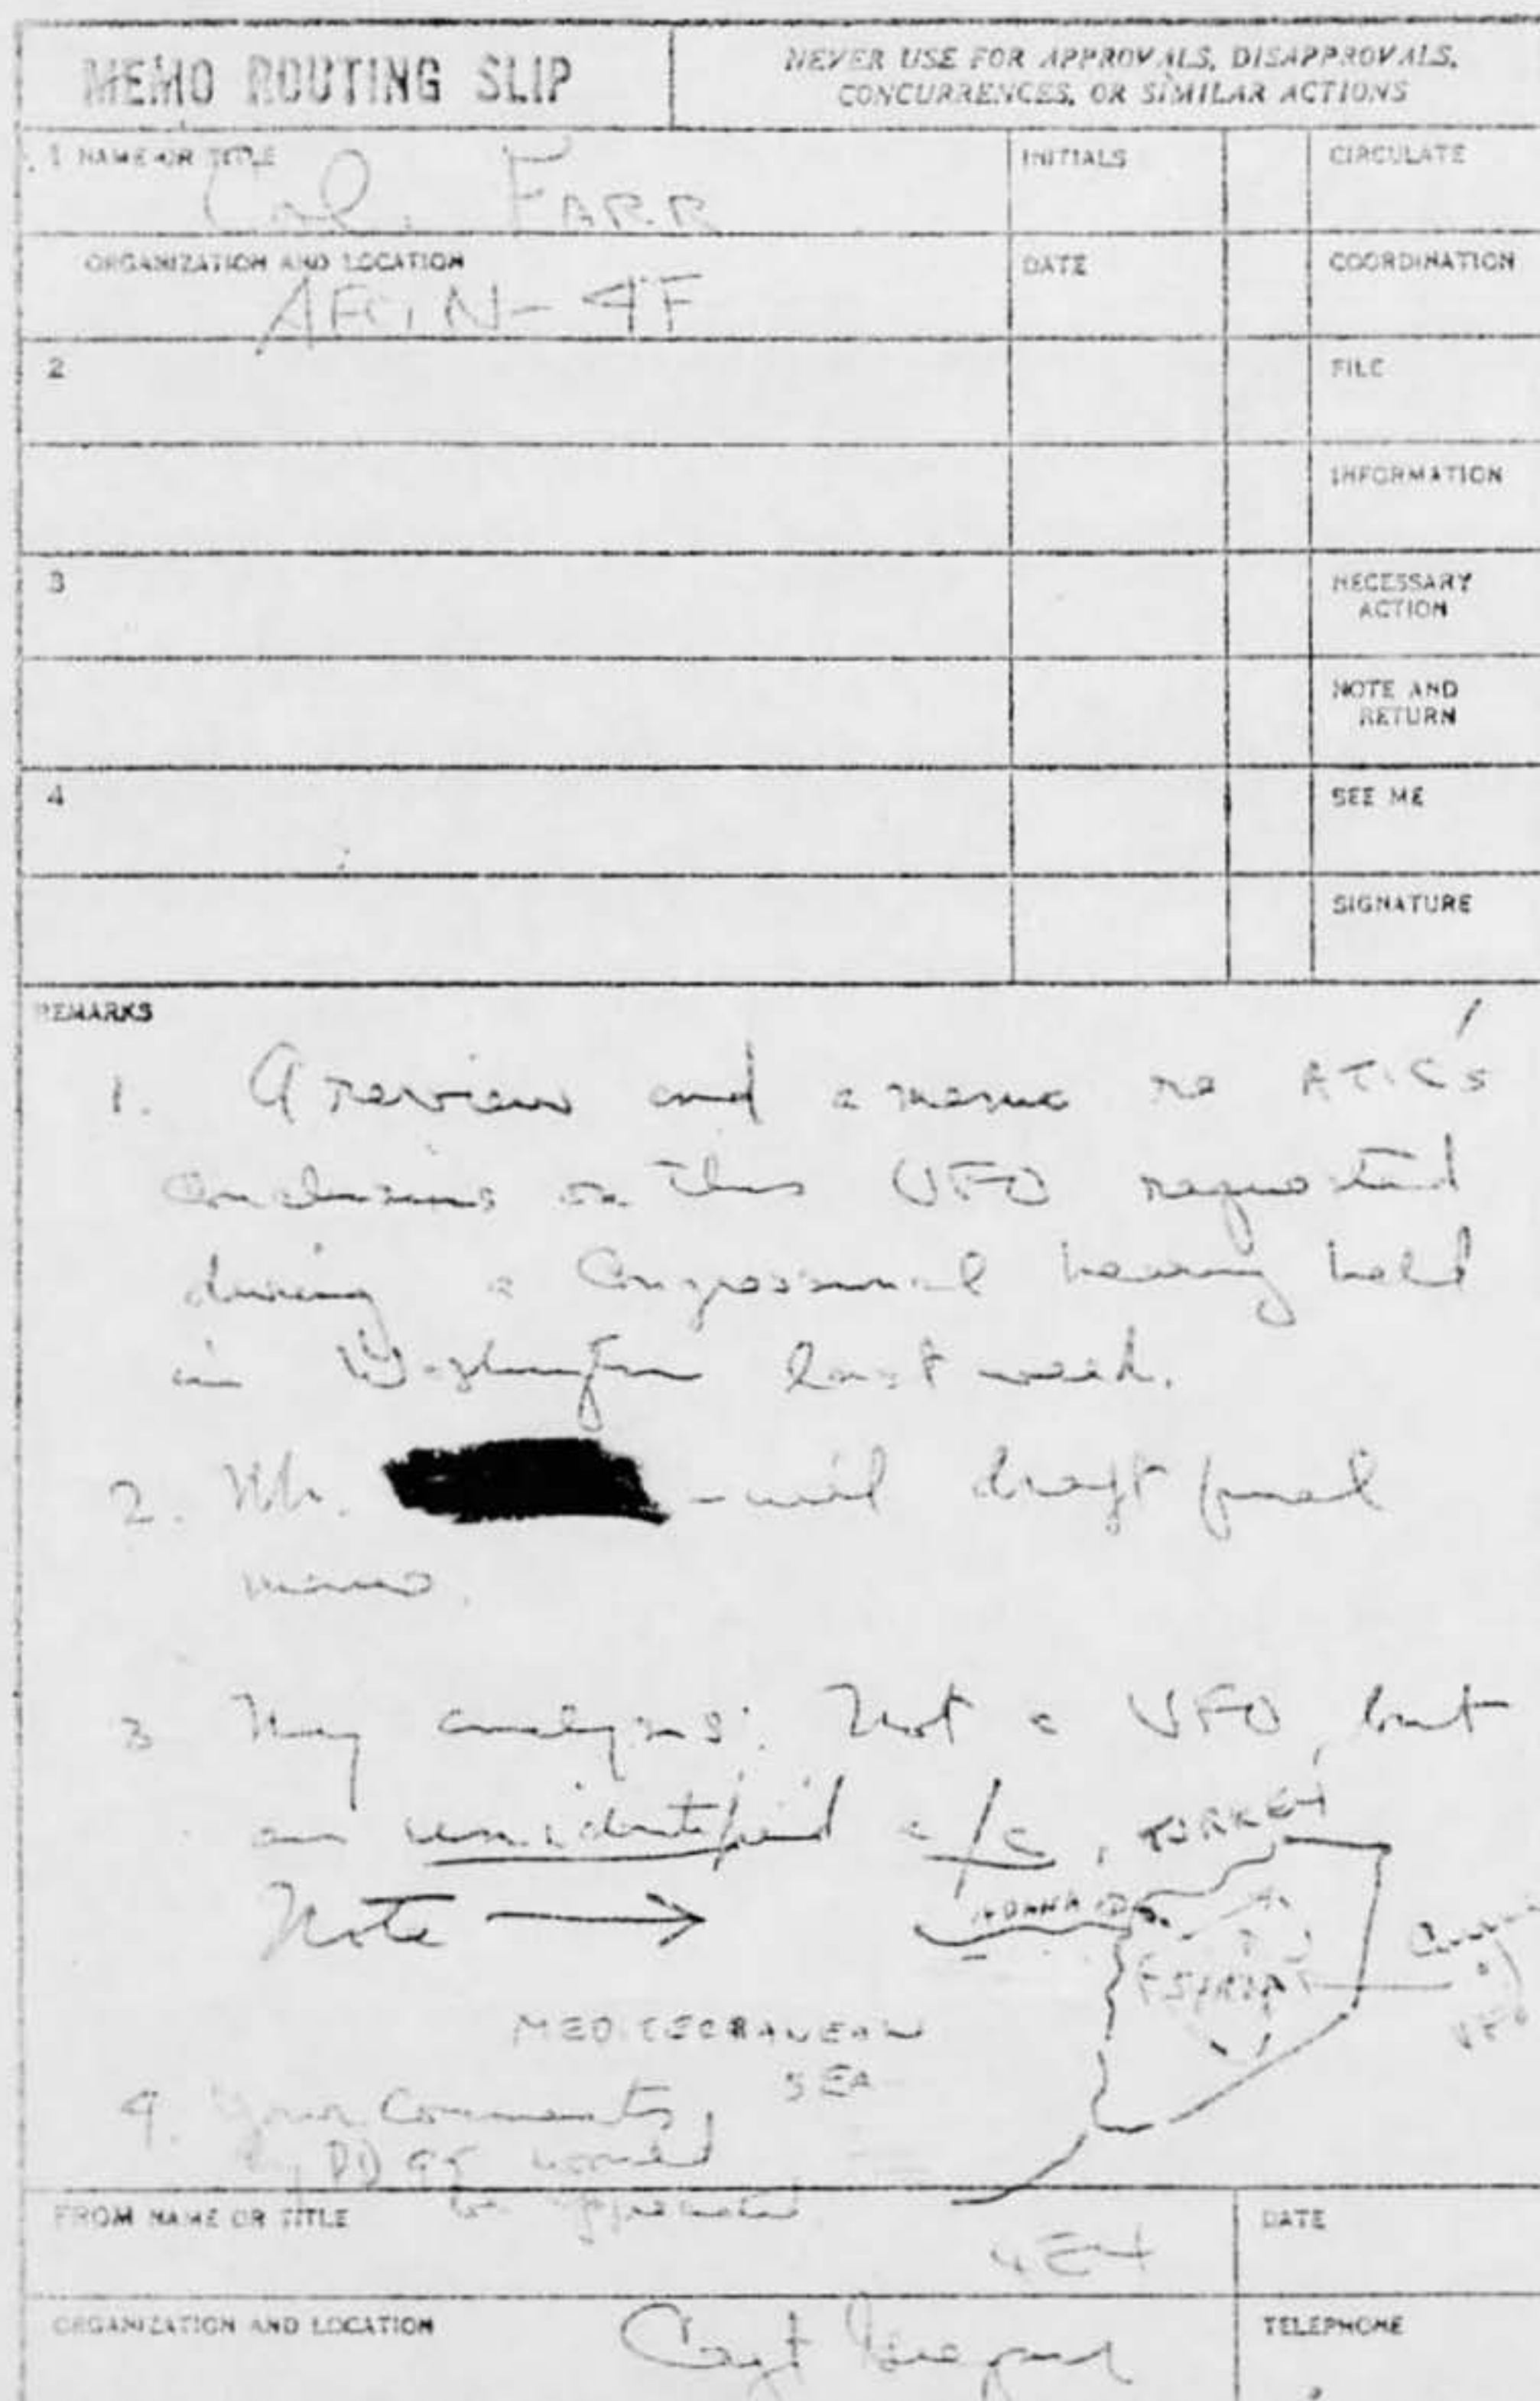 MEMO ROUTING SLIP
NEVER USE FOR APPROVALS, DISAPPROVALS,
CONCURRENCES, OR SIMILAR ACTIONS
1 NAME OR TITLE
Col. FARR
INITIALS
CIRCULATE
ORGANIZATION AND LOCATION
AFCIN-4F
DATE
COORDINATION
2
FILE
INFORMATION
3
NECESSARY
ACTION
NOTE AND
RETURN
4
SEE ME
SIGNATURE
REMARKS
1. A review and a memo re ATIC's
conclusions on this UFO requested
during a Congressional hearing held
in Washington last week.
2. Mr. - will draft final
memo.
3 My analysis: Not a UFO, but
an unidentified a/c,
TURKEY
Note →
ADANA
SYRIA
MEDITERRANEAN
SEA
4. Your comments,
by would
be appreciated
FROM NAME OR TITLE
4E4
DATE
ORGANIZATION AND LOCATION
Capt
TELEPHONE